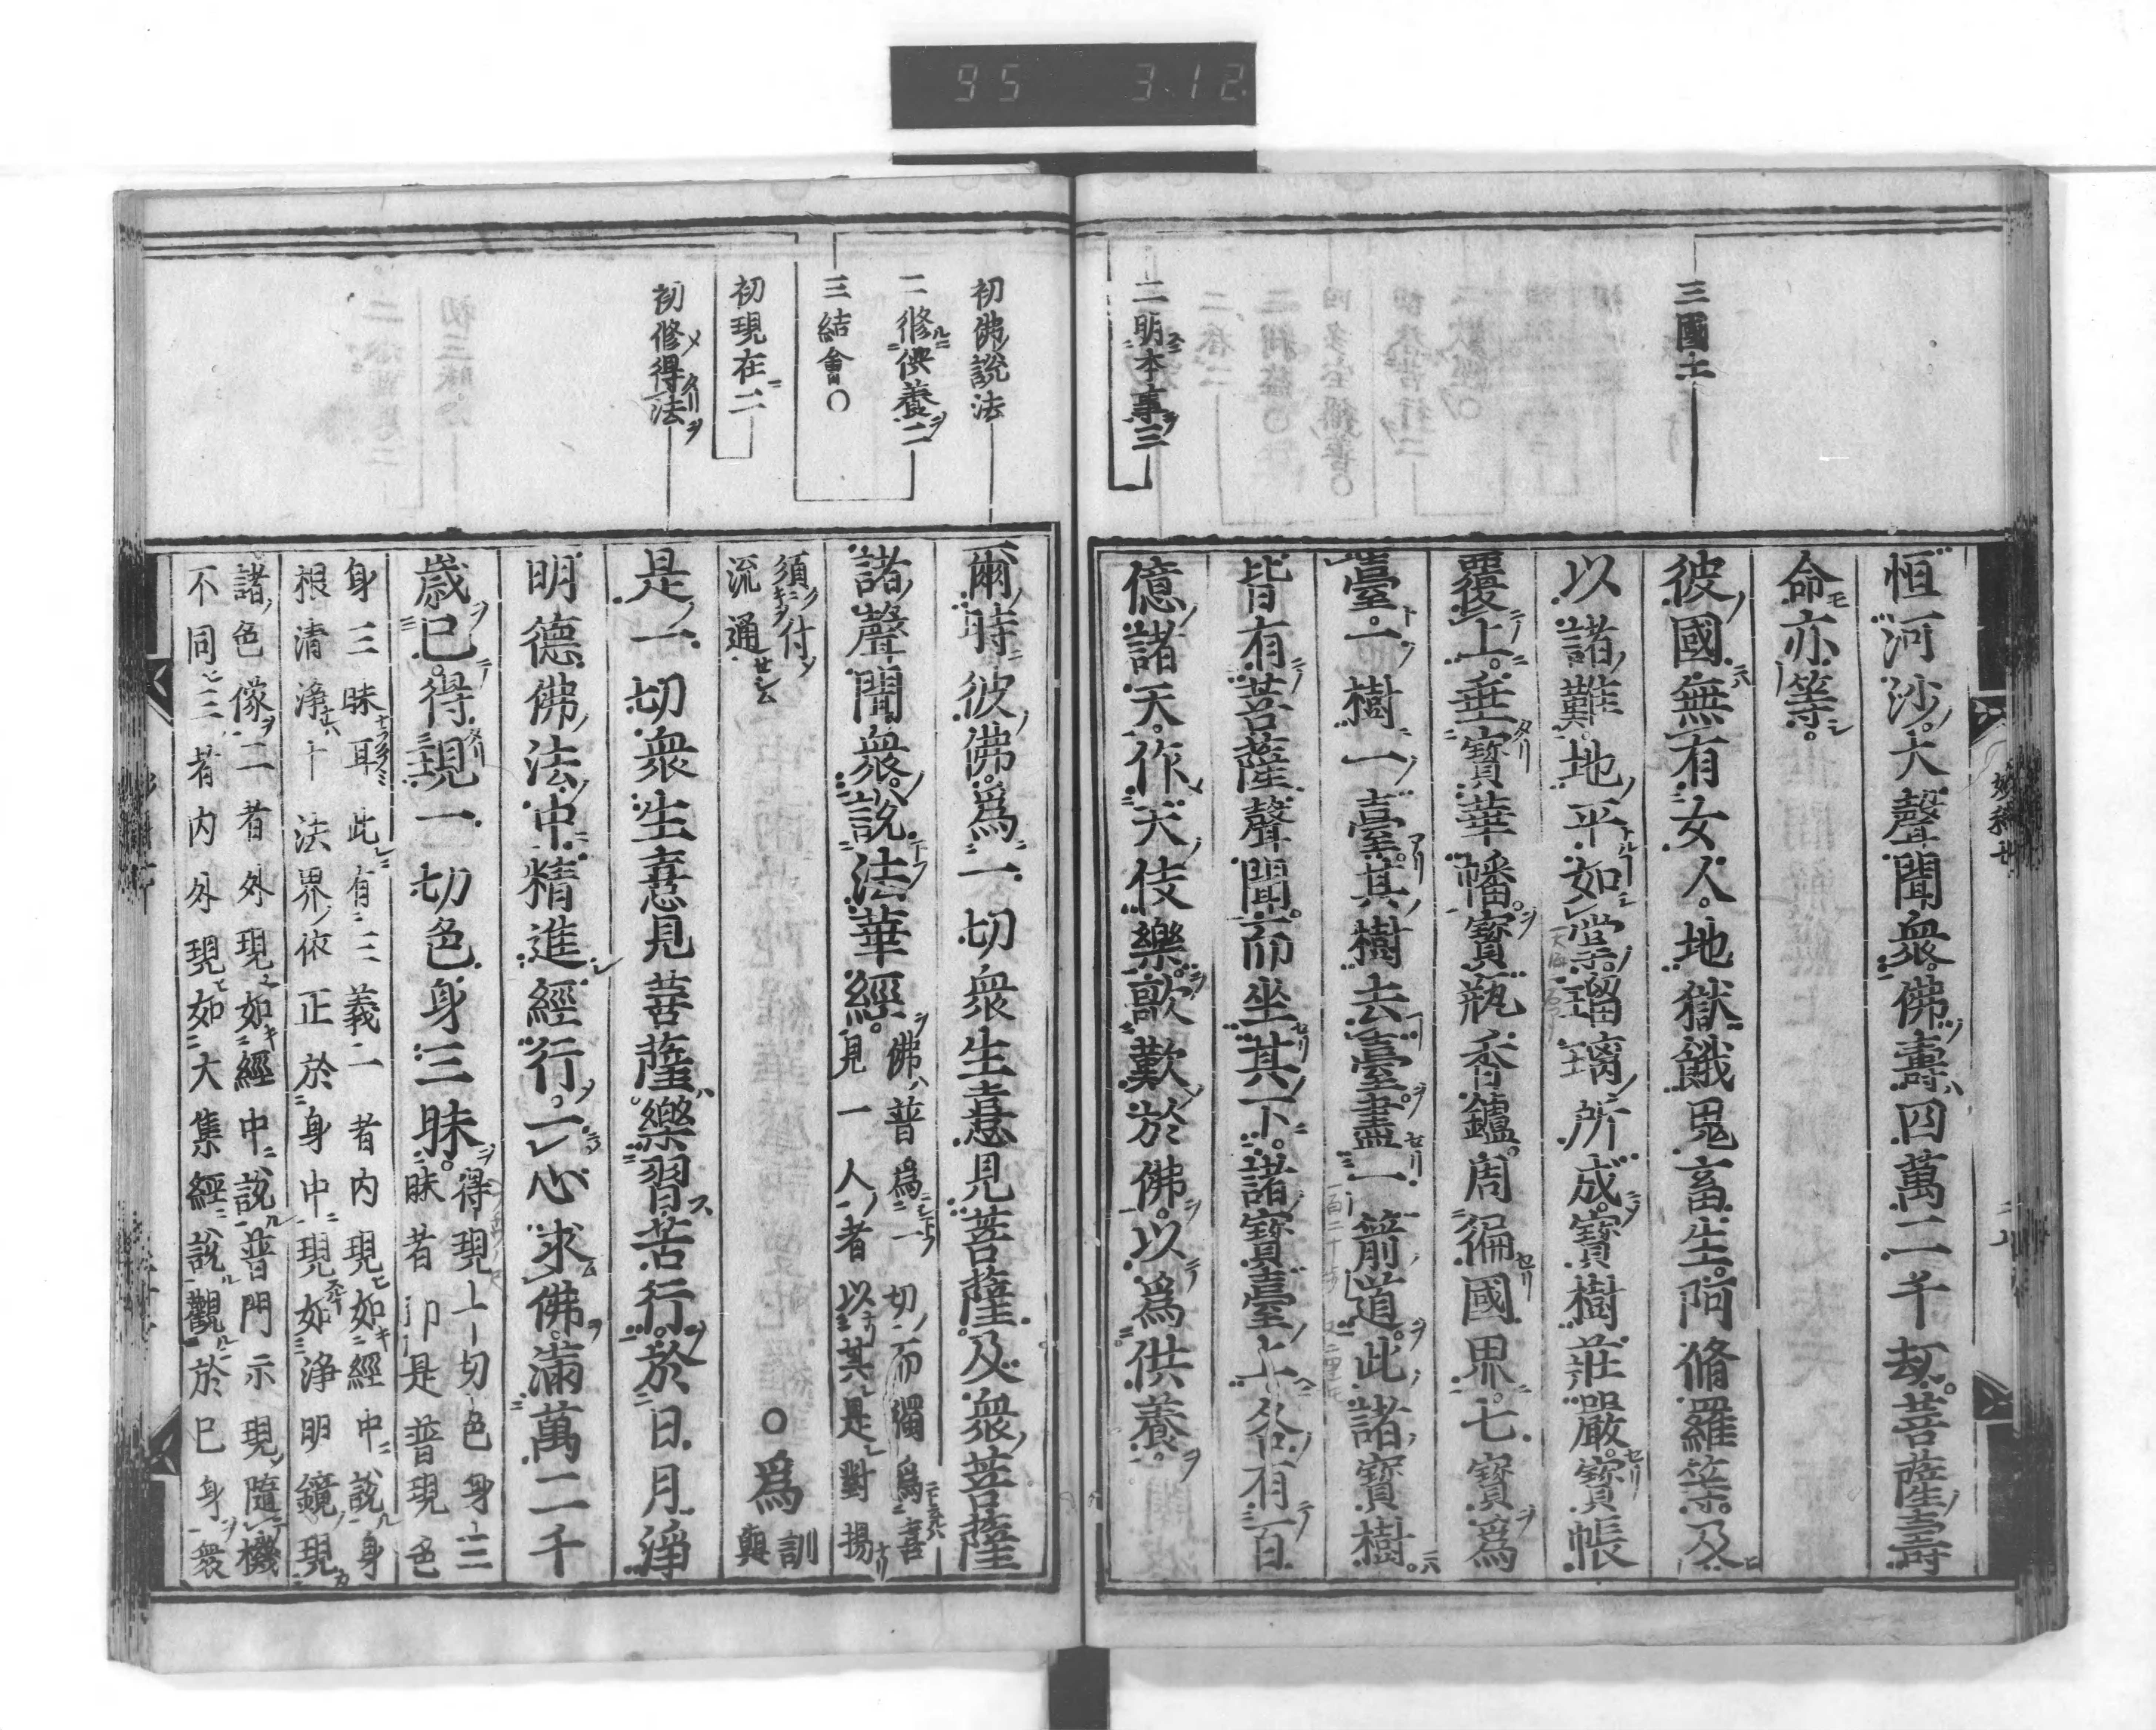 95 3.12
三國土
二明本事三
恒河沙大聲聞衆佛壽四萬二千劫菩薩壽
命亦等
彼國無有女人地獄餓鬼畜生阿脩羅等及
以諸難地平如掌瑠璃所成寶樹莊嚴寶帳
覆上垂寶華幡寶瓶香鑪周徧國界七寶爲
臺一樹一臺其樹去臺盡一箭道此諸寶樹
皆有菩薩聲聞而坐其下諸寶臺上各有百
億諸天作天伎樂歌歎於佛以爲供養
初佛說法
二修供養二
三結會〇
初現在二
初修得法
爾時彼佛爲一切衆生憙見菩薩及衆菩薩
諸聲聞衆說法華經
佛普爲一切而獨爲喜
見一人者以其是對揚
須付
流通
〇爲
訓
與
是一切衆生憙見菩薩樂習苦行於日月淨
明德佛法中精進經行一心求佛滿萬二千
歲已得現一切色身三昧
得現一切色身三
昧者卽是普現色
身三昧耳此有三義一者內現如經中說身
根清淨十法界依正於身中現如淨明鏡現
諸色像二者外現如經中說普門示現隨機
不同三者內外現如大集經說觀於已身衆